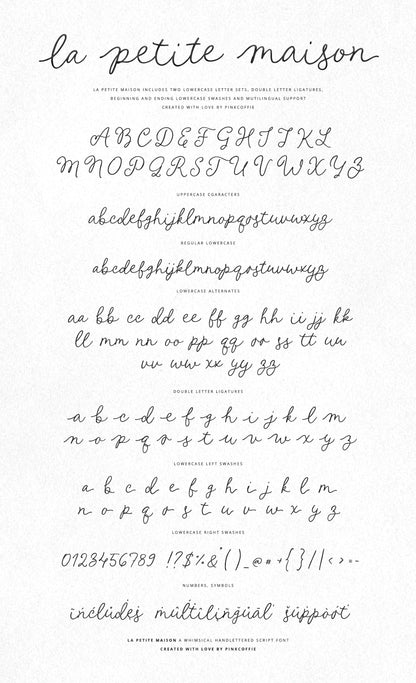 la petite maison
LA PETITE MAISON INCLUDES TWO LOWERCASE LETTER SETS, DOUBLE LETTER LIGATURES,
BEGINNING AND ENDING LOWERCASE SWASHES AND MUTILINGUAL SUPPORT
CREATED WITH LOVE BY PINKCOFFIE
ABCDEFGHIJKL
MNOPQRSTUVWXYZ
UPPERCASE CGARACTERS
abcdefghijklmnopqrstuvwxyz
REGULAR LOWERCASE
abcdefghijklmnopqrstuvwxyz
LOWERCASE ALTERNATES
aa bb cc dd ee ff gg hh ii jj kk
ll mm nn oo pp qq rr ss tt uu
vv ww xx yy zz
DOUBLE LETTER LIGATURES
a b c d e f g h i j k l m
n o p q r s t u v w x y z
LOWERCASE LEFT SWASHES
a b c d e f g h i j k l m
n o p q r s t u v w x y z
LOWERCASE RIGHT SWASHES
0123456789 !?$%&()_@#+{}/|<>=-
NUMBERS, SYMBOLS
includes multilingual support
LA PETITE MAISON A WHIMSICAL HANDLETTERED SCRIPT FONT
CREATED WITH LOVE BY PINKCOFFIE